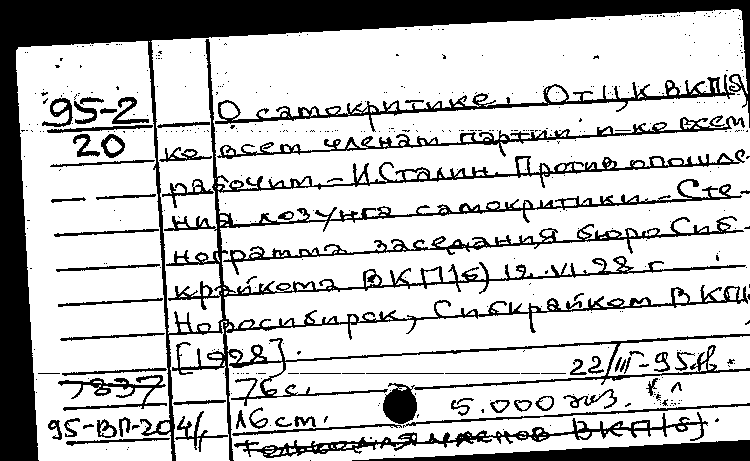 95-2
20
О самокритике. От ЦК ВКП(б)
ко всем членам партии и ко всем
рабочим. – И. Сталин. Против опошле-
ния лозунга самокритики. – Сте-
нограмма заседания бюро Сиб-
крайкома ВКП(б) 19.VI.28 г.
Новосибирск, Сибкрайком ВКП
[1928].
22/III-95
7837 76 с.
5.000 экз.
95-ВП-204/, 16 cm.
Только для членов ВКП(б).